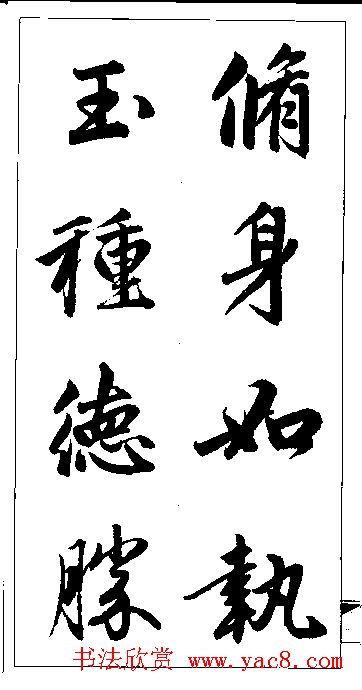 脩身如執
玉種德勝
书法欣赏 www.yac8.com